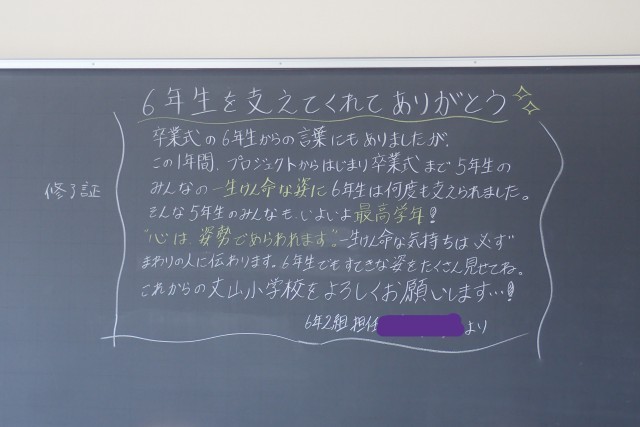 6年生を支えてくれてありがとう
卒業式の6年生からの言葉にもありましたが、
この1年間、プロジェクトからはじまり卒業式まで5年生の
みんなの一生けん命な姿に6年生は何度も支えられました。
そんな5年生のみんなも、いよいよ最高学年!
"心は、姿勢であらわれます。"一生けん命な気持ちは必ず
まわりの人に伝わります。6年生でもすてきな姿をたくさん見せてね。
これからの丈山小学校をよろしくお願いします…!
6年2組 担任 より
修了証